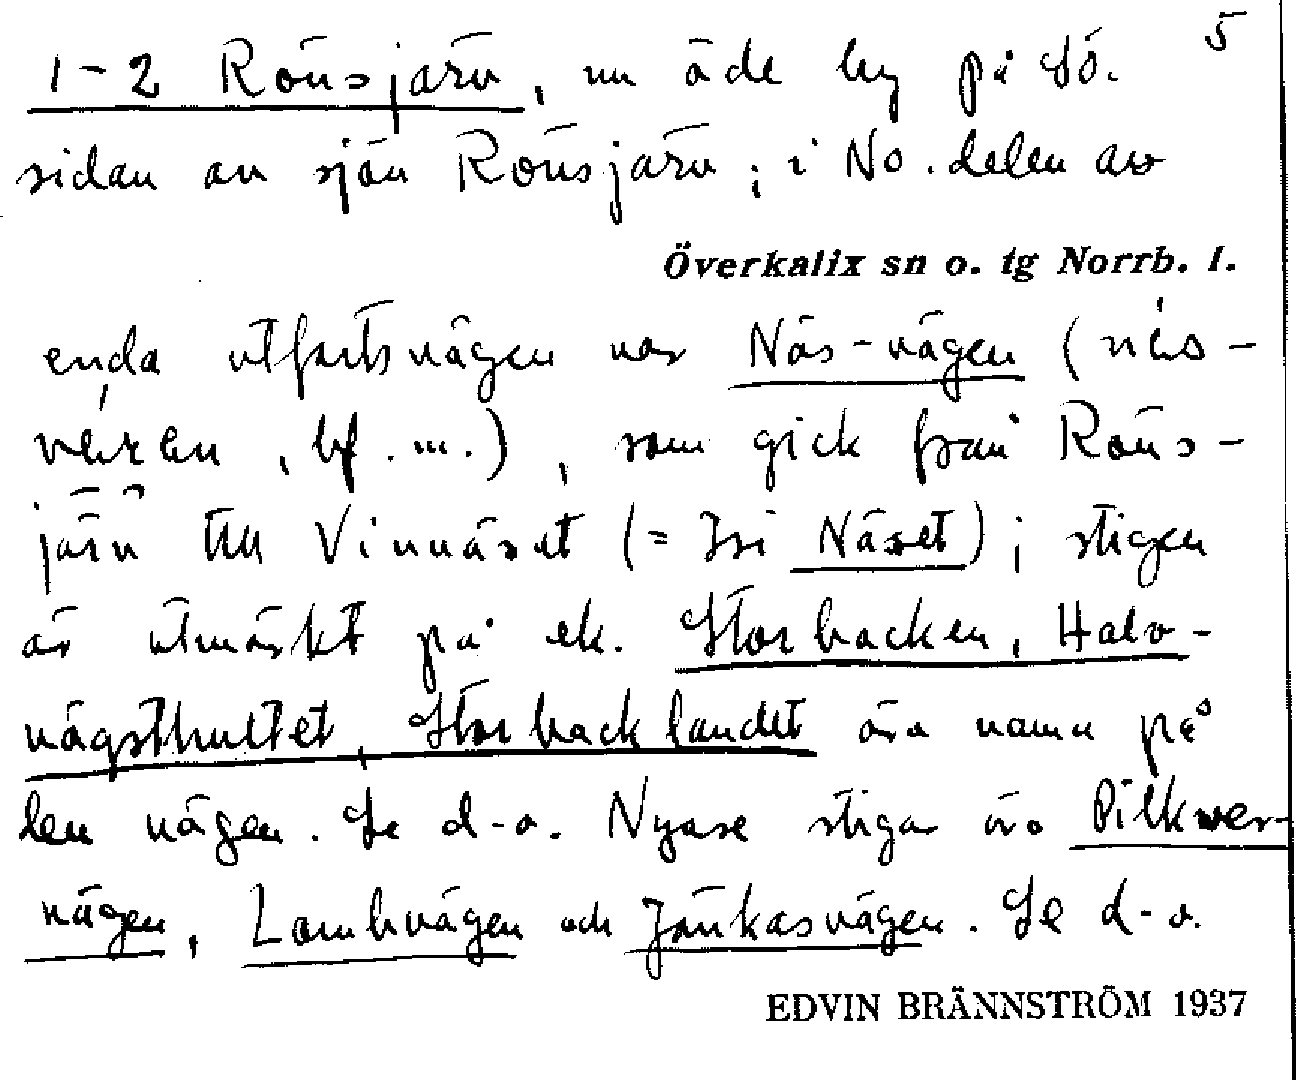 5
1-2 Rönsjärv, nu öde by på Sö.
sidan av sjön Rönsjärv; i No. delen av
Överkalix sn o. tg Norrb. l.
enda utfartsvägen var Näs-vägen (
, bf. m.), som gick från Röns-
järv till Vinnäset (= Isi Näset); stigen
är utmärkt på ek. Storbacken, Halv-
vägsthultet, Storbacklandet äro namn på
den vägen. Se d-o. Nyare stigar äro Pilkver-
vägen, Lombvägen och Jänkasvägen. Se d-o.
EDVIN BRÄNNSTRÖM 1937